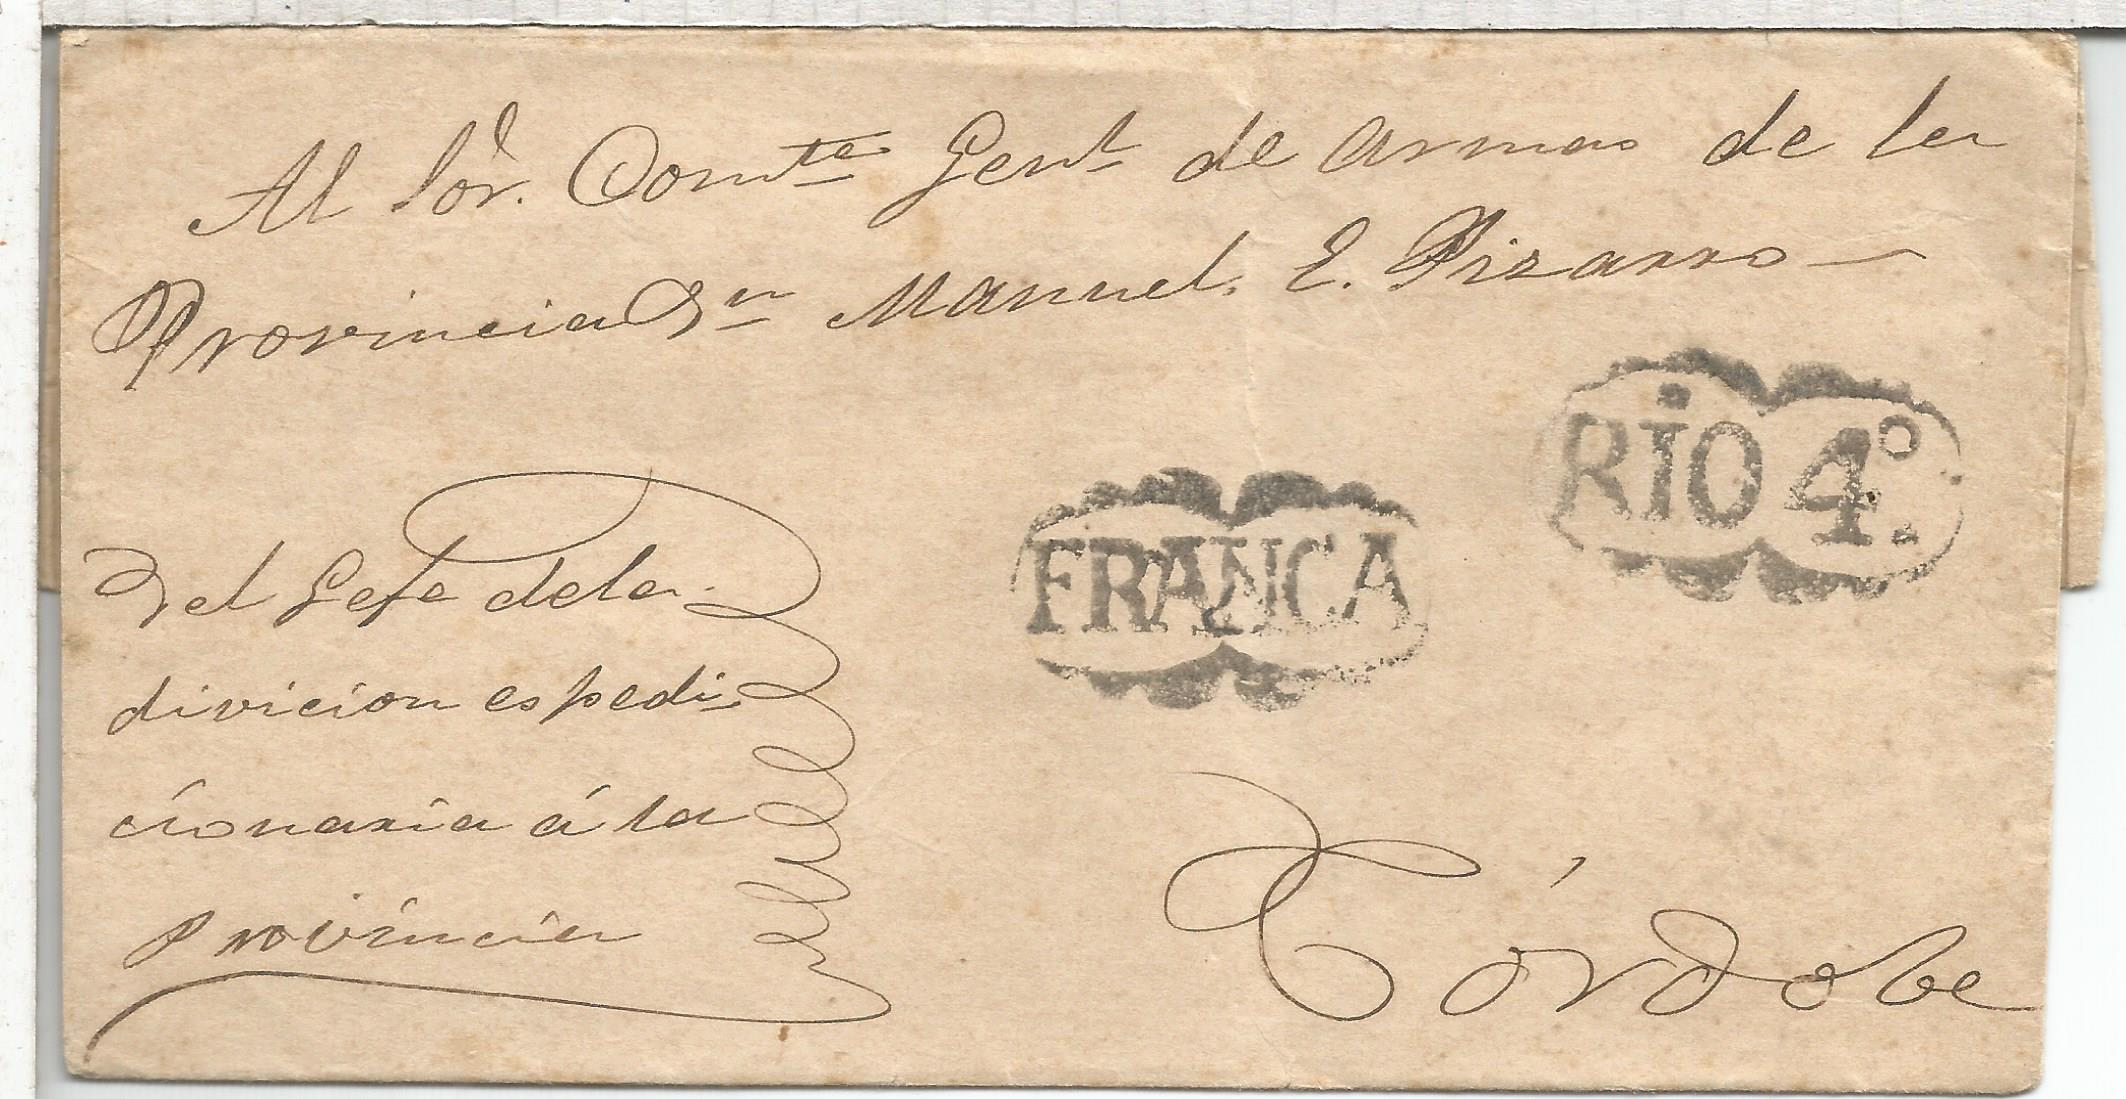 Al Sor. Comte Genl de armas de la
Provincia Dn Manuel, E. Pizarro —
RIO 4º.
FRANCA
Del Gefe dela
divicion espedi-
cionaria á la
provincia
Córdoba